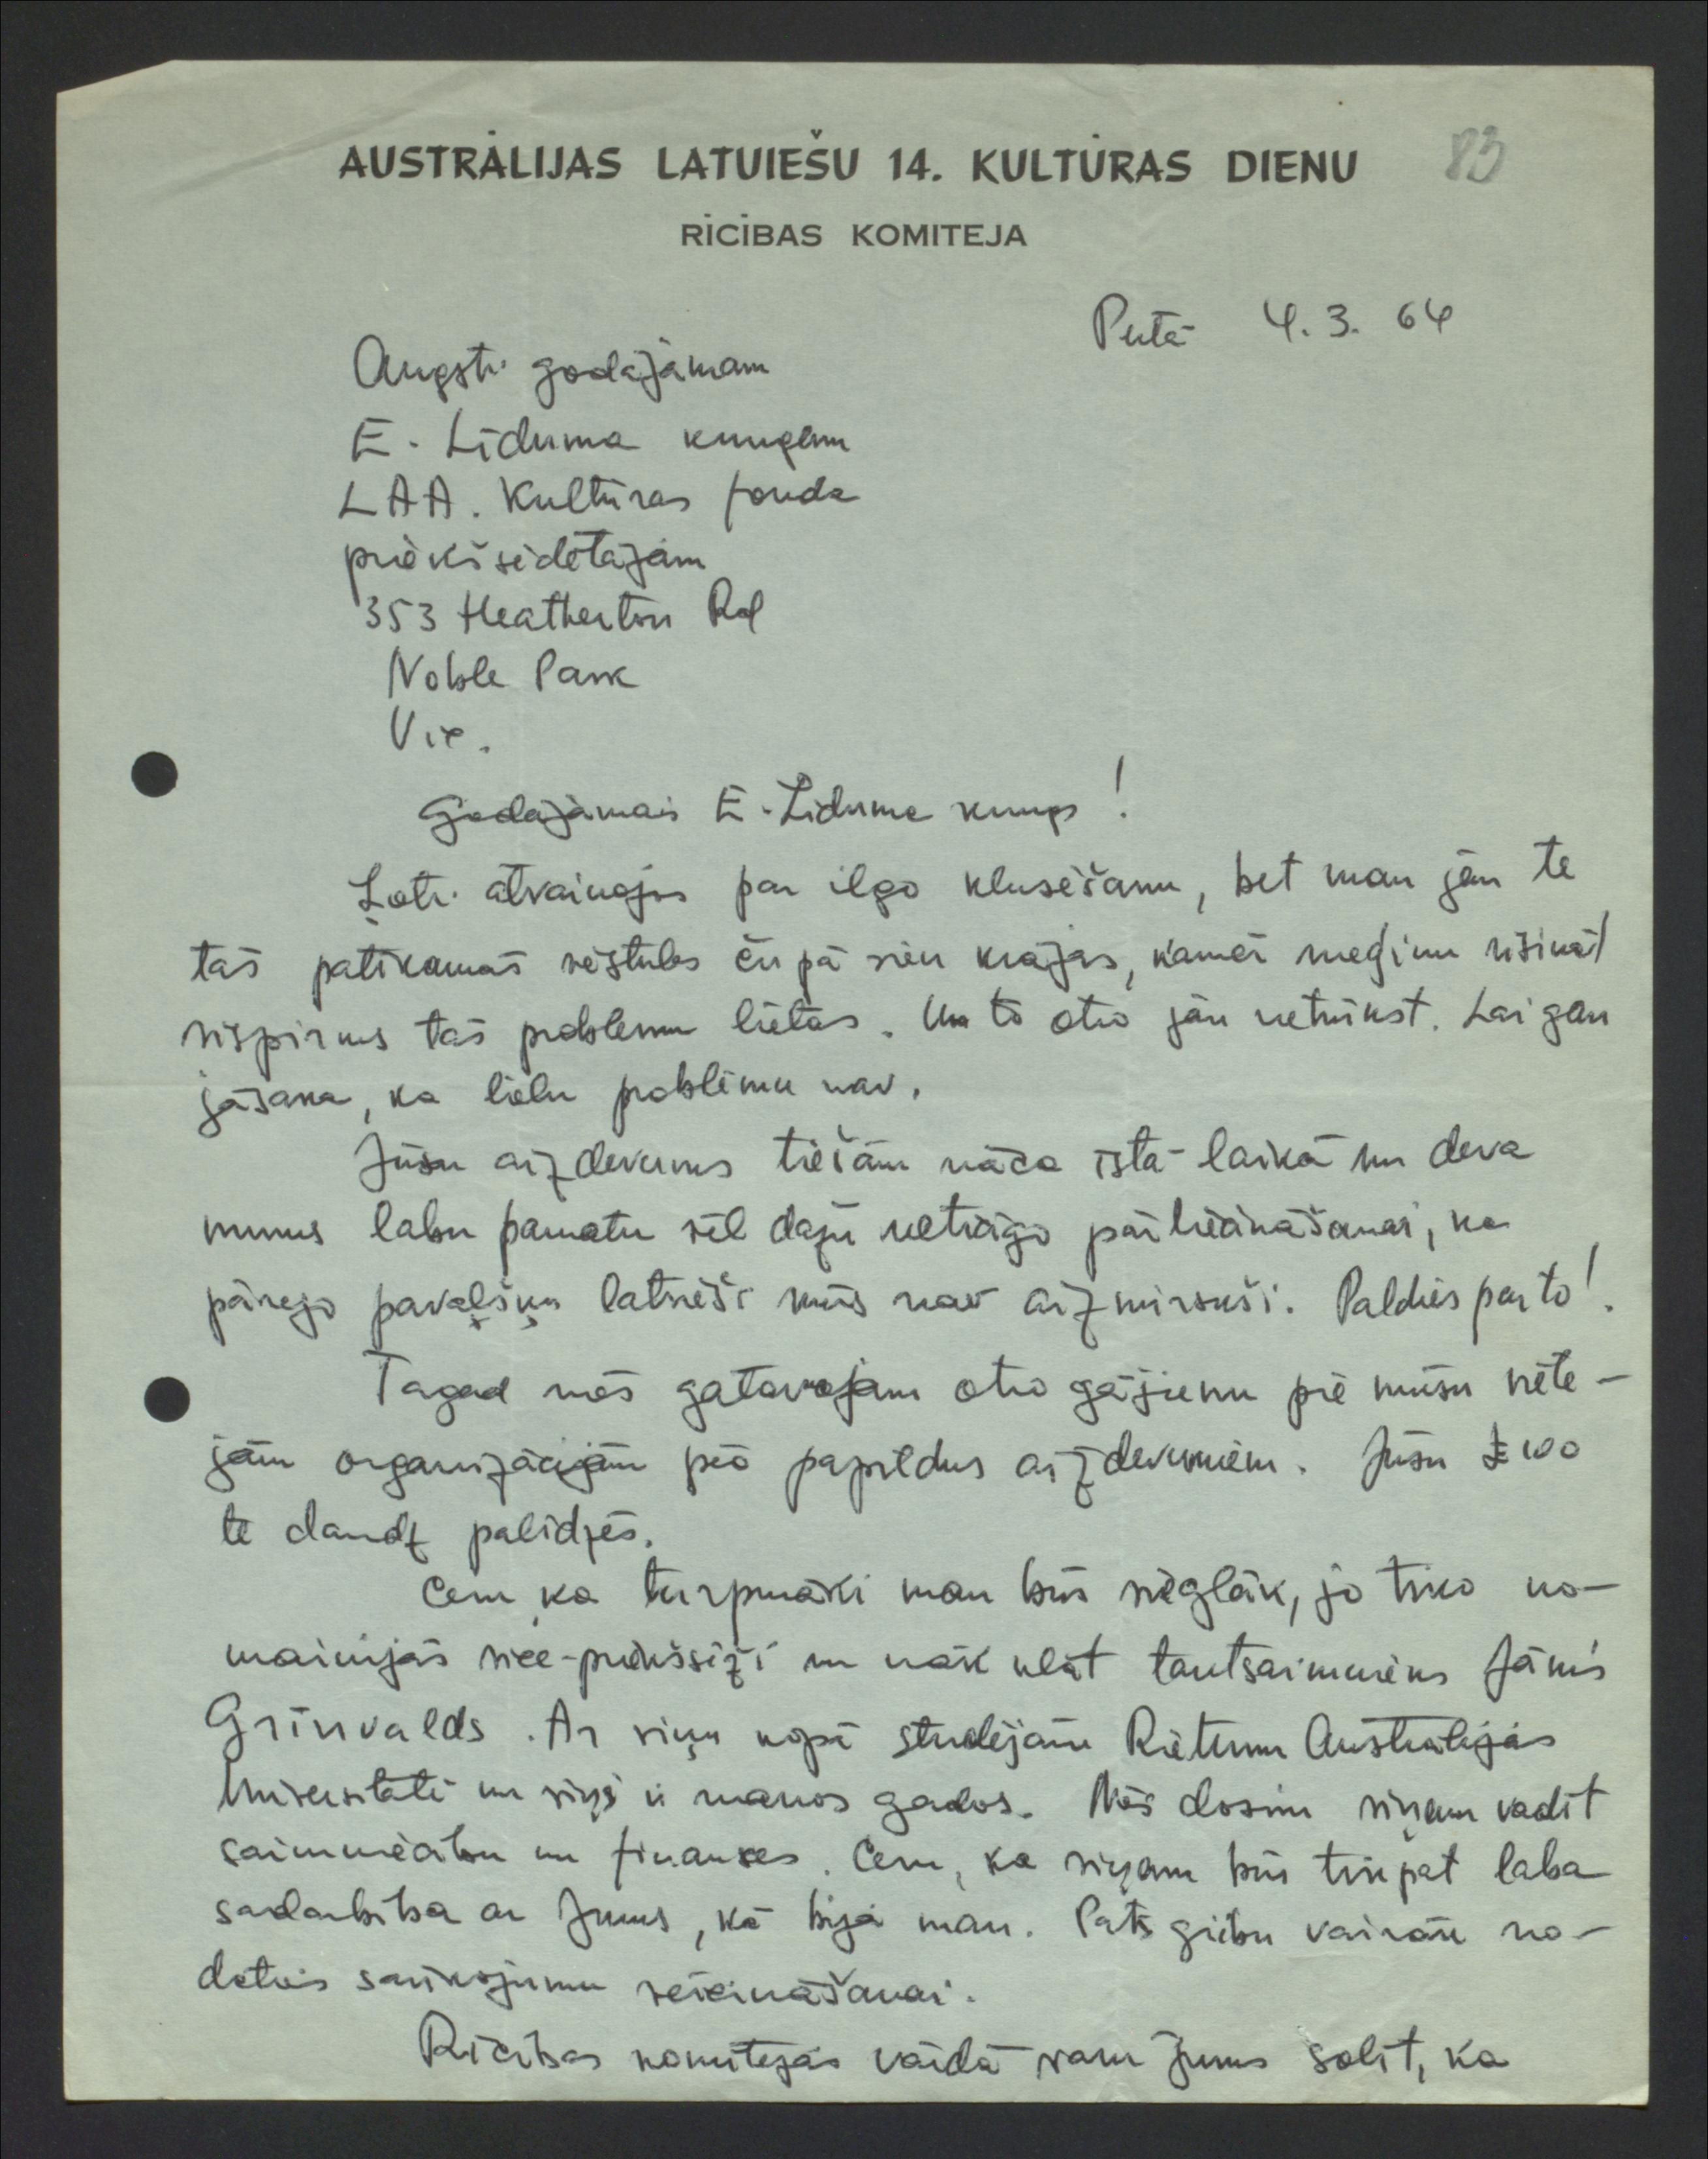 AUSTRĀLIJAS LATVIEŠU 14. KULTŪRAS DIENU 83
RĪCĪBAS KOMITEJA
Pertā 4.3.64
Augsti godājamam
E. Līduma kungam
LAA. Kultūras fonda
priekšsēdētājam
353 Heatherton Rd
Noble Park
Vic.
Godājamais E. Līduma kungs!
Ļoti atvainojos par ilgo klusēšanu, bet man jau te
tās patīkamās vēstules čupā vien krājas, kamēr mēģinu risināt
vispirms tās problemu lietas. Un to otro jau netrūkst. Lai gan
jāsaka, ka lielu problēmu nav.
Jūsu aizdevums tiešām nāca īstā laikā un deva
mums labu pamatu vēl dažu neticīgo pārliecināšanai, ka
pārējo pavalšķu latvieši mūs nav aizmirsuši. Paldies par to!
Tagad mēs gatavojam otro gājienu pie mūsu vietē-
jām organizācijām pēc papildus aizdevumiem. Jūsu £100
te daudz palīdzēs.
Ceru, ka turpmāki man būs vieglāk, jo tiko no-
mainījās vice-priekšsēži un nāk klāt tautsaimnieks Jānis
Grīnvalds. Ar viņu kopā studējām Rietumu Austrālijas
Universitātē un viņš ir manos gados. Mēs dosim viņam vadīt
saimniecību un finanses. Ceru, ka viņam būs tikpat laba
sadarbība ar Jums, kā bija man. Pats gribu vairāk no-
doties sarīkojumu veicināšanai.
Rīcības komitejas vārdā varu Jums solīt, ka